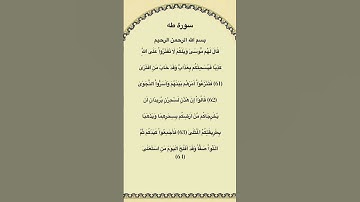 سورة طه
بسم الله الرحمن الرحيم
قال لهم موسى ويلكم لا تفتروا على الله
كذبا فيسحتكم بعذاب وقد خاب من افترى
(61) فتنازعوا أمرهم بينهم وأسروا النجوى
(62) قالوا إن هذان لساحران يريدان أن
يخرجاكم من أرضكم بسحرهما ويذهبا
بطريقتكم المثلى (63) فأجمعوا كيدكم ثم
ائتوا صفا وقد أفلح اليوم من استعلى
(64)